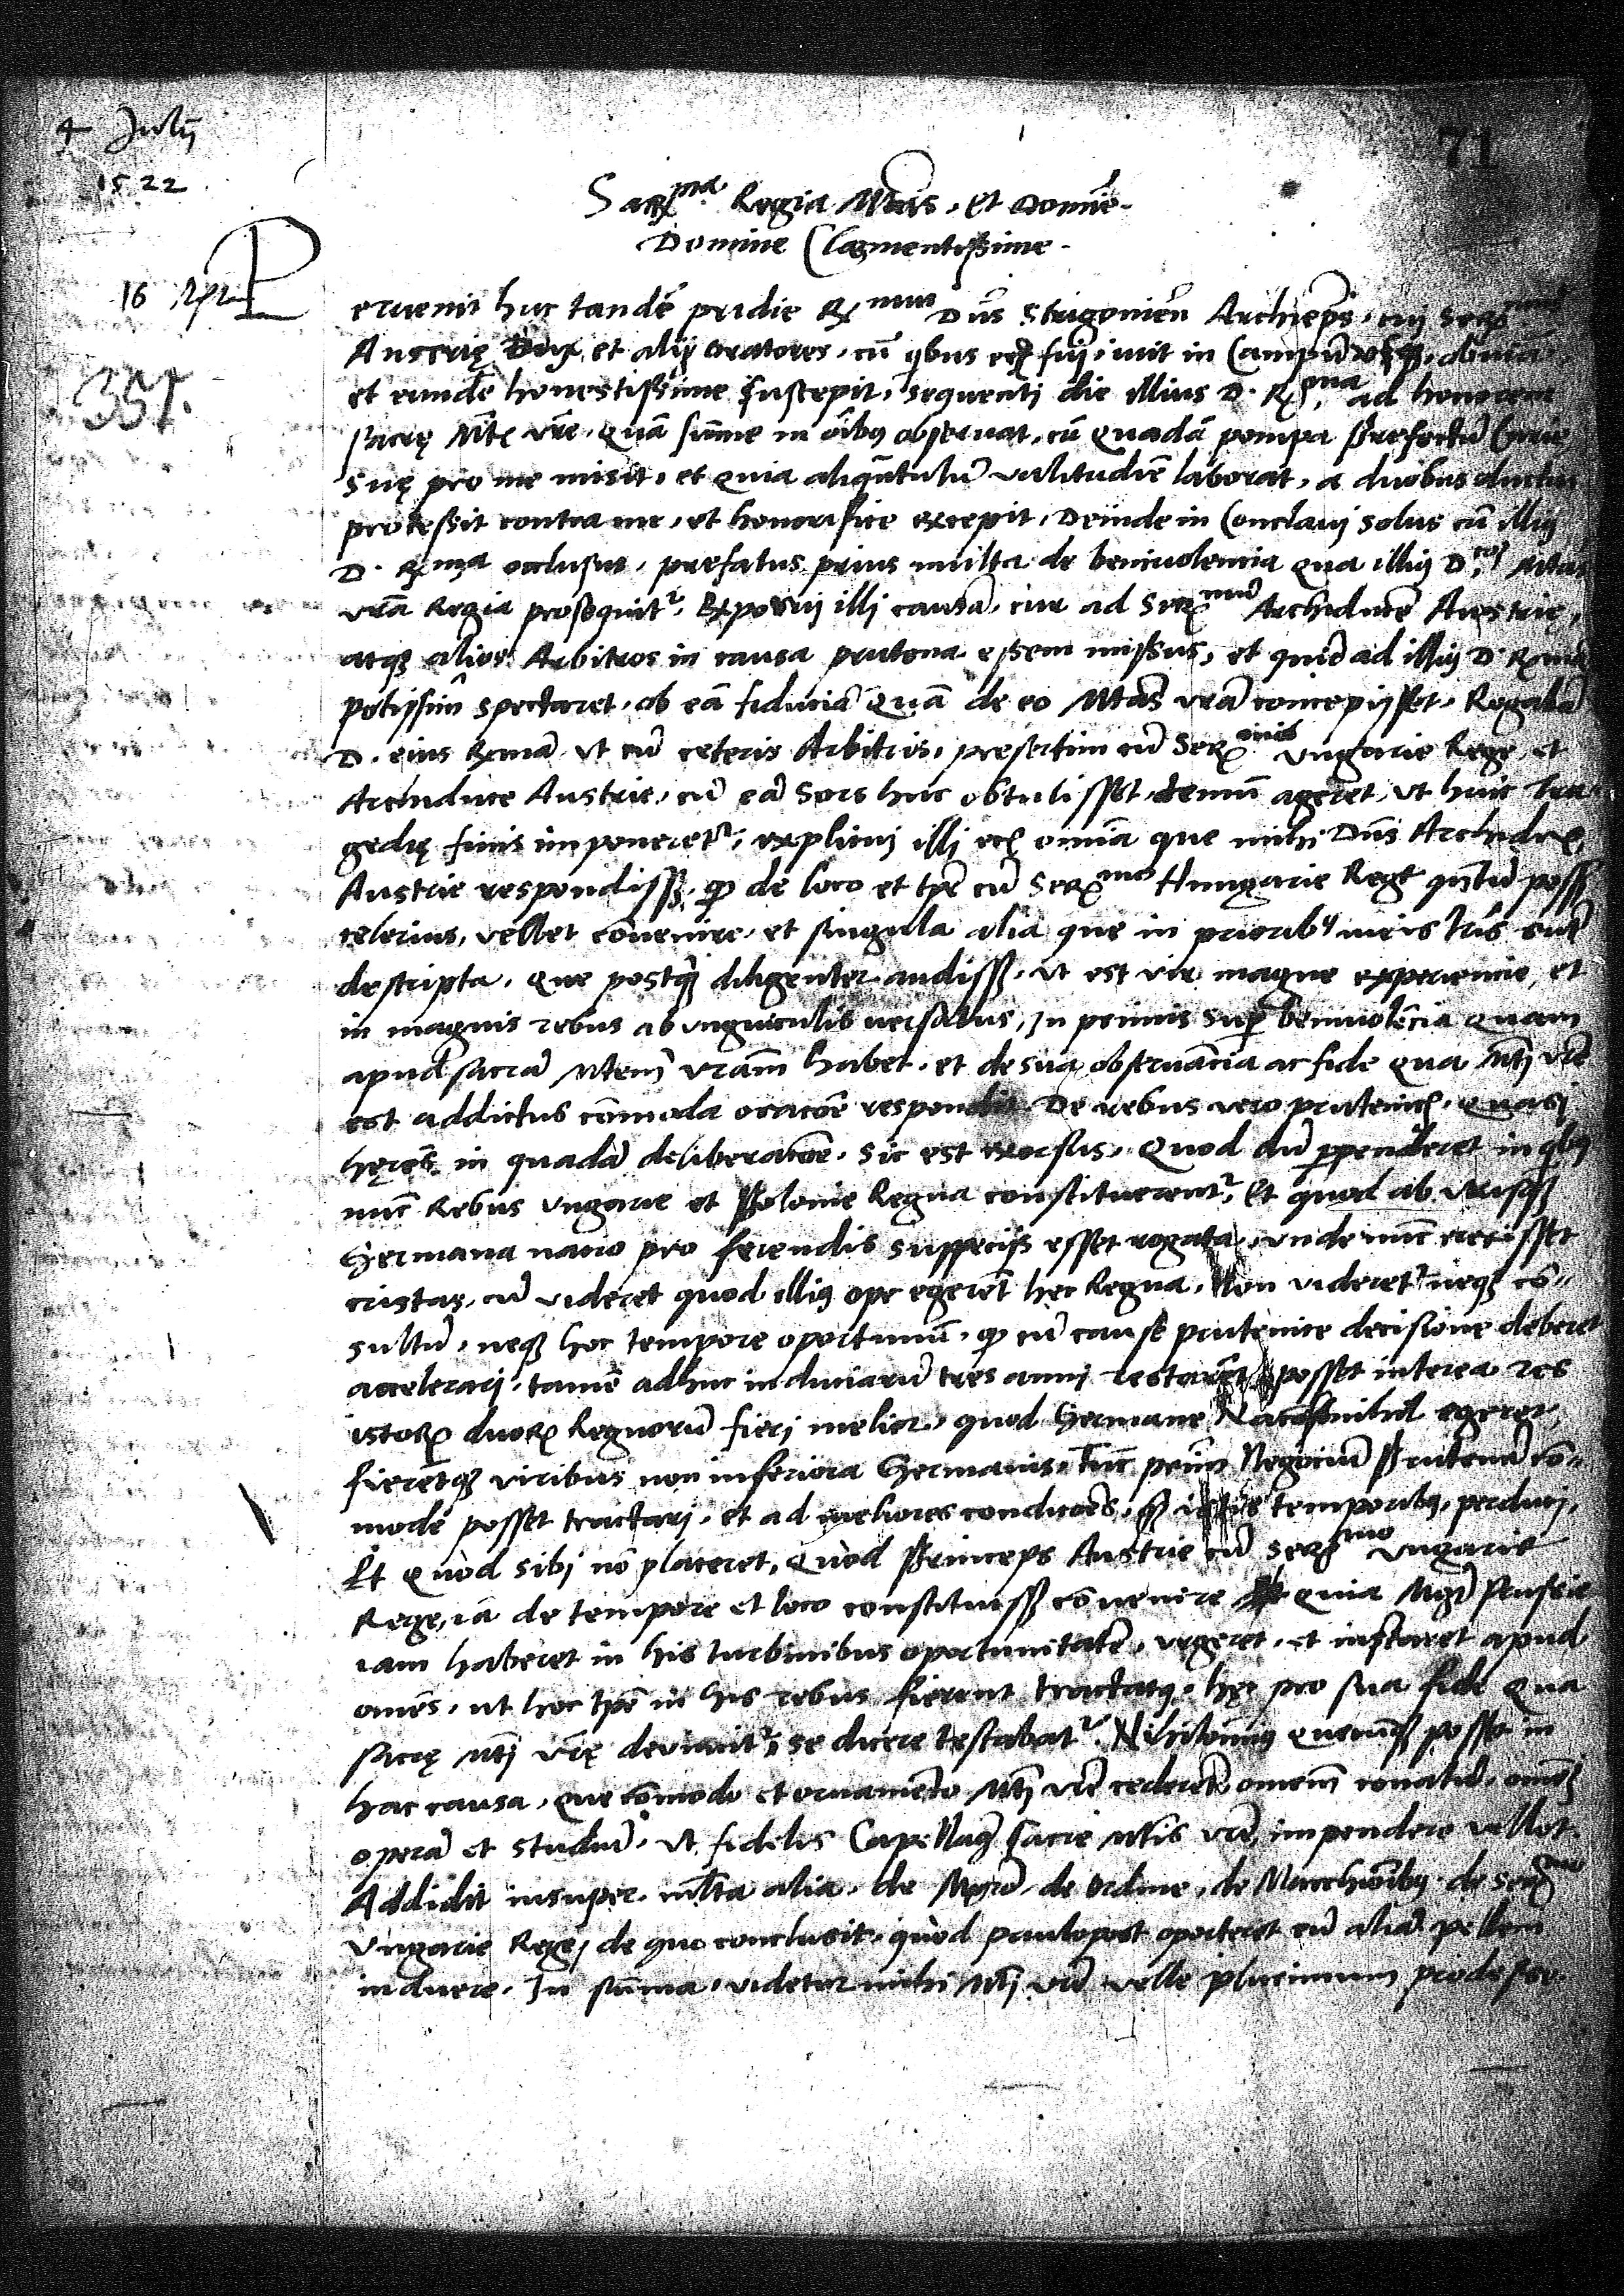 4 Julij
71
1522
Sacrma Regia Mtas. et Domine
Domine Clementissime.
16
Peruenit huc tandē pridie Rmus Dns Strigonien Archieps, cuj Ser
Austrię Dux et alij oratores, cū qbus fuj, iuit in Campū obuiā
et eundē honestissime suscepit, sequenti die illius D. Rma ad honorem
357.
sacrę Mtis vre. quā sume in oibus obseruat, cū quadā pompa prefectū Curie
suę pro me misit, et quia aliqntulū valitudie laborat, a duobus ductus
processit contra me, et honorifice excepit, Deinde in Conclavj solus cū illiꝰ
D. Rma occlusus, prefatus prius multa de beniuolencia qua illiꝰ D. Mtas
vra Regia prosequitr. Exposuj illi causā, cur ad Sermū Archiducē Austrię,
atqꝫ alios Arbitros in causa prutena essem missus, et quid ad illiꝰ D. Rma
potissimū spectaret, ob eā fiduciā quā de eo Mtas vra concepisset, Rogabā
D. eius Rmā, vt cū ceteris Arbitris, presertim cū Ser Vngarie Rege, et
Archiduce Austrie, cū eā sors huc obtulisset, demū ageret, vt huic tra
gedię finis imponeretr, explicuj illi omnia que mihi Dns Archidux
Austrie respondisset, qp de loco et tpe cū Sermo Hungarie Rege qntū posset
celerius, vellet cōuenire, et singula alia que in prioribꝰ meis lris sunt
descripta. Que postqꝫ diligenter audisset, vt est vir magne experiencie, et
in magnis rebus ab vnguiculis versatus, In primis sup beniuolēcia quam
apud sacrā Mtem vram habet, et de sua obseruācia ac fide qua Mti vre
est addictus cōmoda oracōe respondit. De rebus vero prutenicis, quasi
herēs in quadā deliberacōe, sic est exorsus, Quod dū ppenderet in qbꝰ
nūc Rebus Vngarie et Polonie Regna constituerentr, Et quod ab vtrisqꝫ
Germana nacio pro ferendis suppeciis esset rogata, vnde nūc erexisset
cristas, cū videret quod illiꝰ ope egerēt hec Regna, Non videretr neqꝫ cō-
sultū, neqꝫ hoc tempore oportunū, qp cū cause prutenice decisione deberet
accelerarj, tamē adhuc induciarū tres annj restarēt, posset interea res
istorꝫ duorꝫ Regnorū fierj melior, quod Germane Nacōis nihil egeret,
fierētqꝫ viribus non inferiora Germanis, Tūc primū Negociū Prutenū cō-
mode posset tractarj, et ad meliores condicōes, qꝫ istis temporibꝰ, perducj,
Et quod sibj nō placeret, quod Princeps Austrie cū Sermo Vngarie
Rege, iā de tempore et loco constituisset cōuenire quia Mgr Prussie
iam haberet in his turbinibus oportunitatē, vrgeret, et instaret apud
omēs, ut hoc tpe in his rebus fierent tractatꝰ. hec pro sua fide qua
sacrę Mti vrę deuincitr, se dicere testabatr. Nihilominꝰ quecūqꝫ posset in
hac causa, que cōmodo et ornamēto Mti vre cederēt, omem conatū, omē
operā et studiū, vt fidelis Capellanꝰ sacre Mtis vre impendere vellet
Addidit insuper mlta alia, de Mgro, de ordine, de Marchiōibꝰ, de Sermo
Vngarie Rege, de quo conclusit, quod paulopost oporteret eū aliā pellem
induere. In suma, videtur mihi Mti vre velle plurimum prodesse.